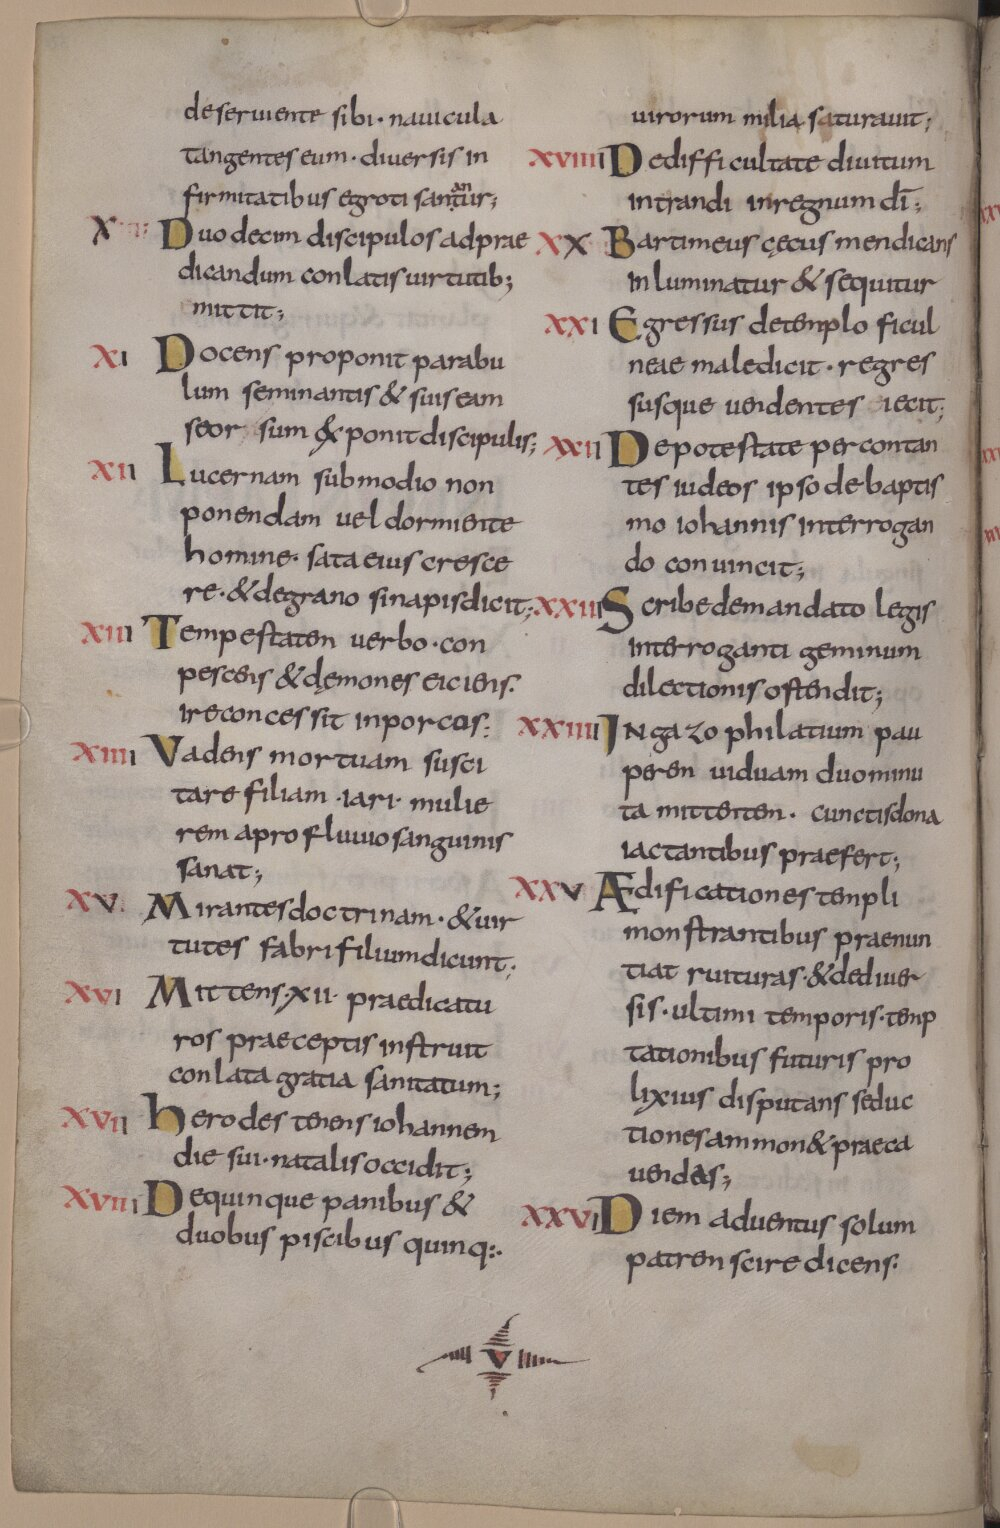 deseruiente sibi · nauicula
tangentes eum · diuersis in
firmitatibus egroti santur;
an
X Duodecim discipulos ad prae
dicandum conlatis uirtutib;
mittit;
XI Docens proponit parabu
lum seminantis & suis eam
seor sum &ponit discipulis;
XII Lucernam sub modio non
ponendam uel dormiente
homine · sata eius cresce
re · & degrano sinapis dicit;
XIII Tempestaten uerbo · con
pescens & dęmones eiciens.
ire concessit in porcos:
XIIII Vadens mortuam susci
tare filiam · iari · mulie
rem a profluuio sanguinis
sanat;
XV Mirantes doctrinam · & uir
tutes fabri filium dicunt;
XVI Mittens · xii · praedicatu
ros praeceptis instruit
conlata gratia sanitatum;
XVII herodes tenens iohannem
die sui · natalis occidit;
XVIII De quinque panibus &
duobus piscibus quinq:.
uirorum milia saturauit;
XVIIII De difficultate diuitum
intrandi in regnum dī;
XX Bartimeus cęcus mendicans
inluminatur & sequitur
XXI Egressus de templo ficul
neae maledicit · regres
susque uendentes iecit;
XXII De potestate percontan
tes iudeos ipso de baptis
mo iohannis interrogan
do conuincit;
XXIII Scribe de mandato legis
interroganti geminum
dilectionis ostendit;
XXIIII IN gazophilatium pau
peren uiduam duo minu
ta mittenten · cunctis dona
iactantibus praefert;
XXV Ædificationes templi
monstrantibus praenun
tiat ruituras · & dediuer
sis · ultimi temporis · temp
tationibus futuris pro
lixius disputans seduc
tiones ammon& praeca
uendas;
XXVI Diem aduentus solum
patren scire dicens:
V